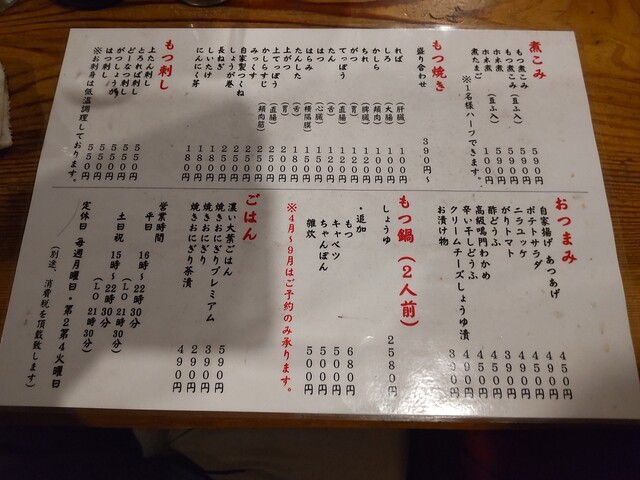 煮こみ
もつ煮こみ 590円
もつ煮こみ (豆ふ入) 590円
ホネ煮 590円
ホネ煮 (豆ふ入) 590円
煮たまご 100円
※1名様ハーフできます。
もつ焼き
盛り合わせ 390円～
れば (肝臓) 100円
しろ (大腸) 100円
かしら (頬肉) 100円
ちれ (脾臓) 120円
がつ (胃) 120円
てっぽう (直腸) 120円
たん (舌) 120円
はつ (心臓)
はらみ (横隔膜)
たんした (舌)
上がつ (胃)
上てっぽう (直腸)
かしらすじ (頬肉筋)
みっくす
自家製つくね
しょうが巻
長ねぎ
しいたけ 180円
にんにく芽 180円
もつ刺し
上たん刺し 550円
とろれば刺し 550円
どーなつ刺し 550円
がつしょうが 550円
はつ刺し 550円
※お刺身は低温調理しております。
おつまみ
自家揚げ あつあげ 450円
ポテトサラダ 490円
ニラユッケ 450円
がりトマト 390円
酢どうふ 490円
高級鳴門わかめ 450円
辛い干しどうふ 490円
クリームチーズしょうゆ漬 450円
お漬け物 390円
もつ鍋(2人前)
しょうゆ 2580円
・追加
もつ 680円
キャベツ 500円
ちゃんぽん 500円
雑炊 500円
※4月～9月はご予約のみ承ります。
ごはん
濃い大葉ごはん 590円
焼きおにぎりプレミアム 390円
焼きおにぎり 290円
焼きおにぎり茶漬 490円
営業時間
平日 16時～22時30分
(LO 21時30分)
土日祝 15時～22時30分
(LO 21時30分)
定休日 毎週月曜日・第2第4火曜日
(別途、消費税を頂戴致します)